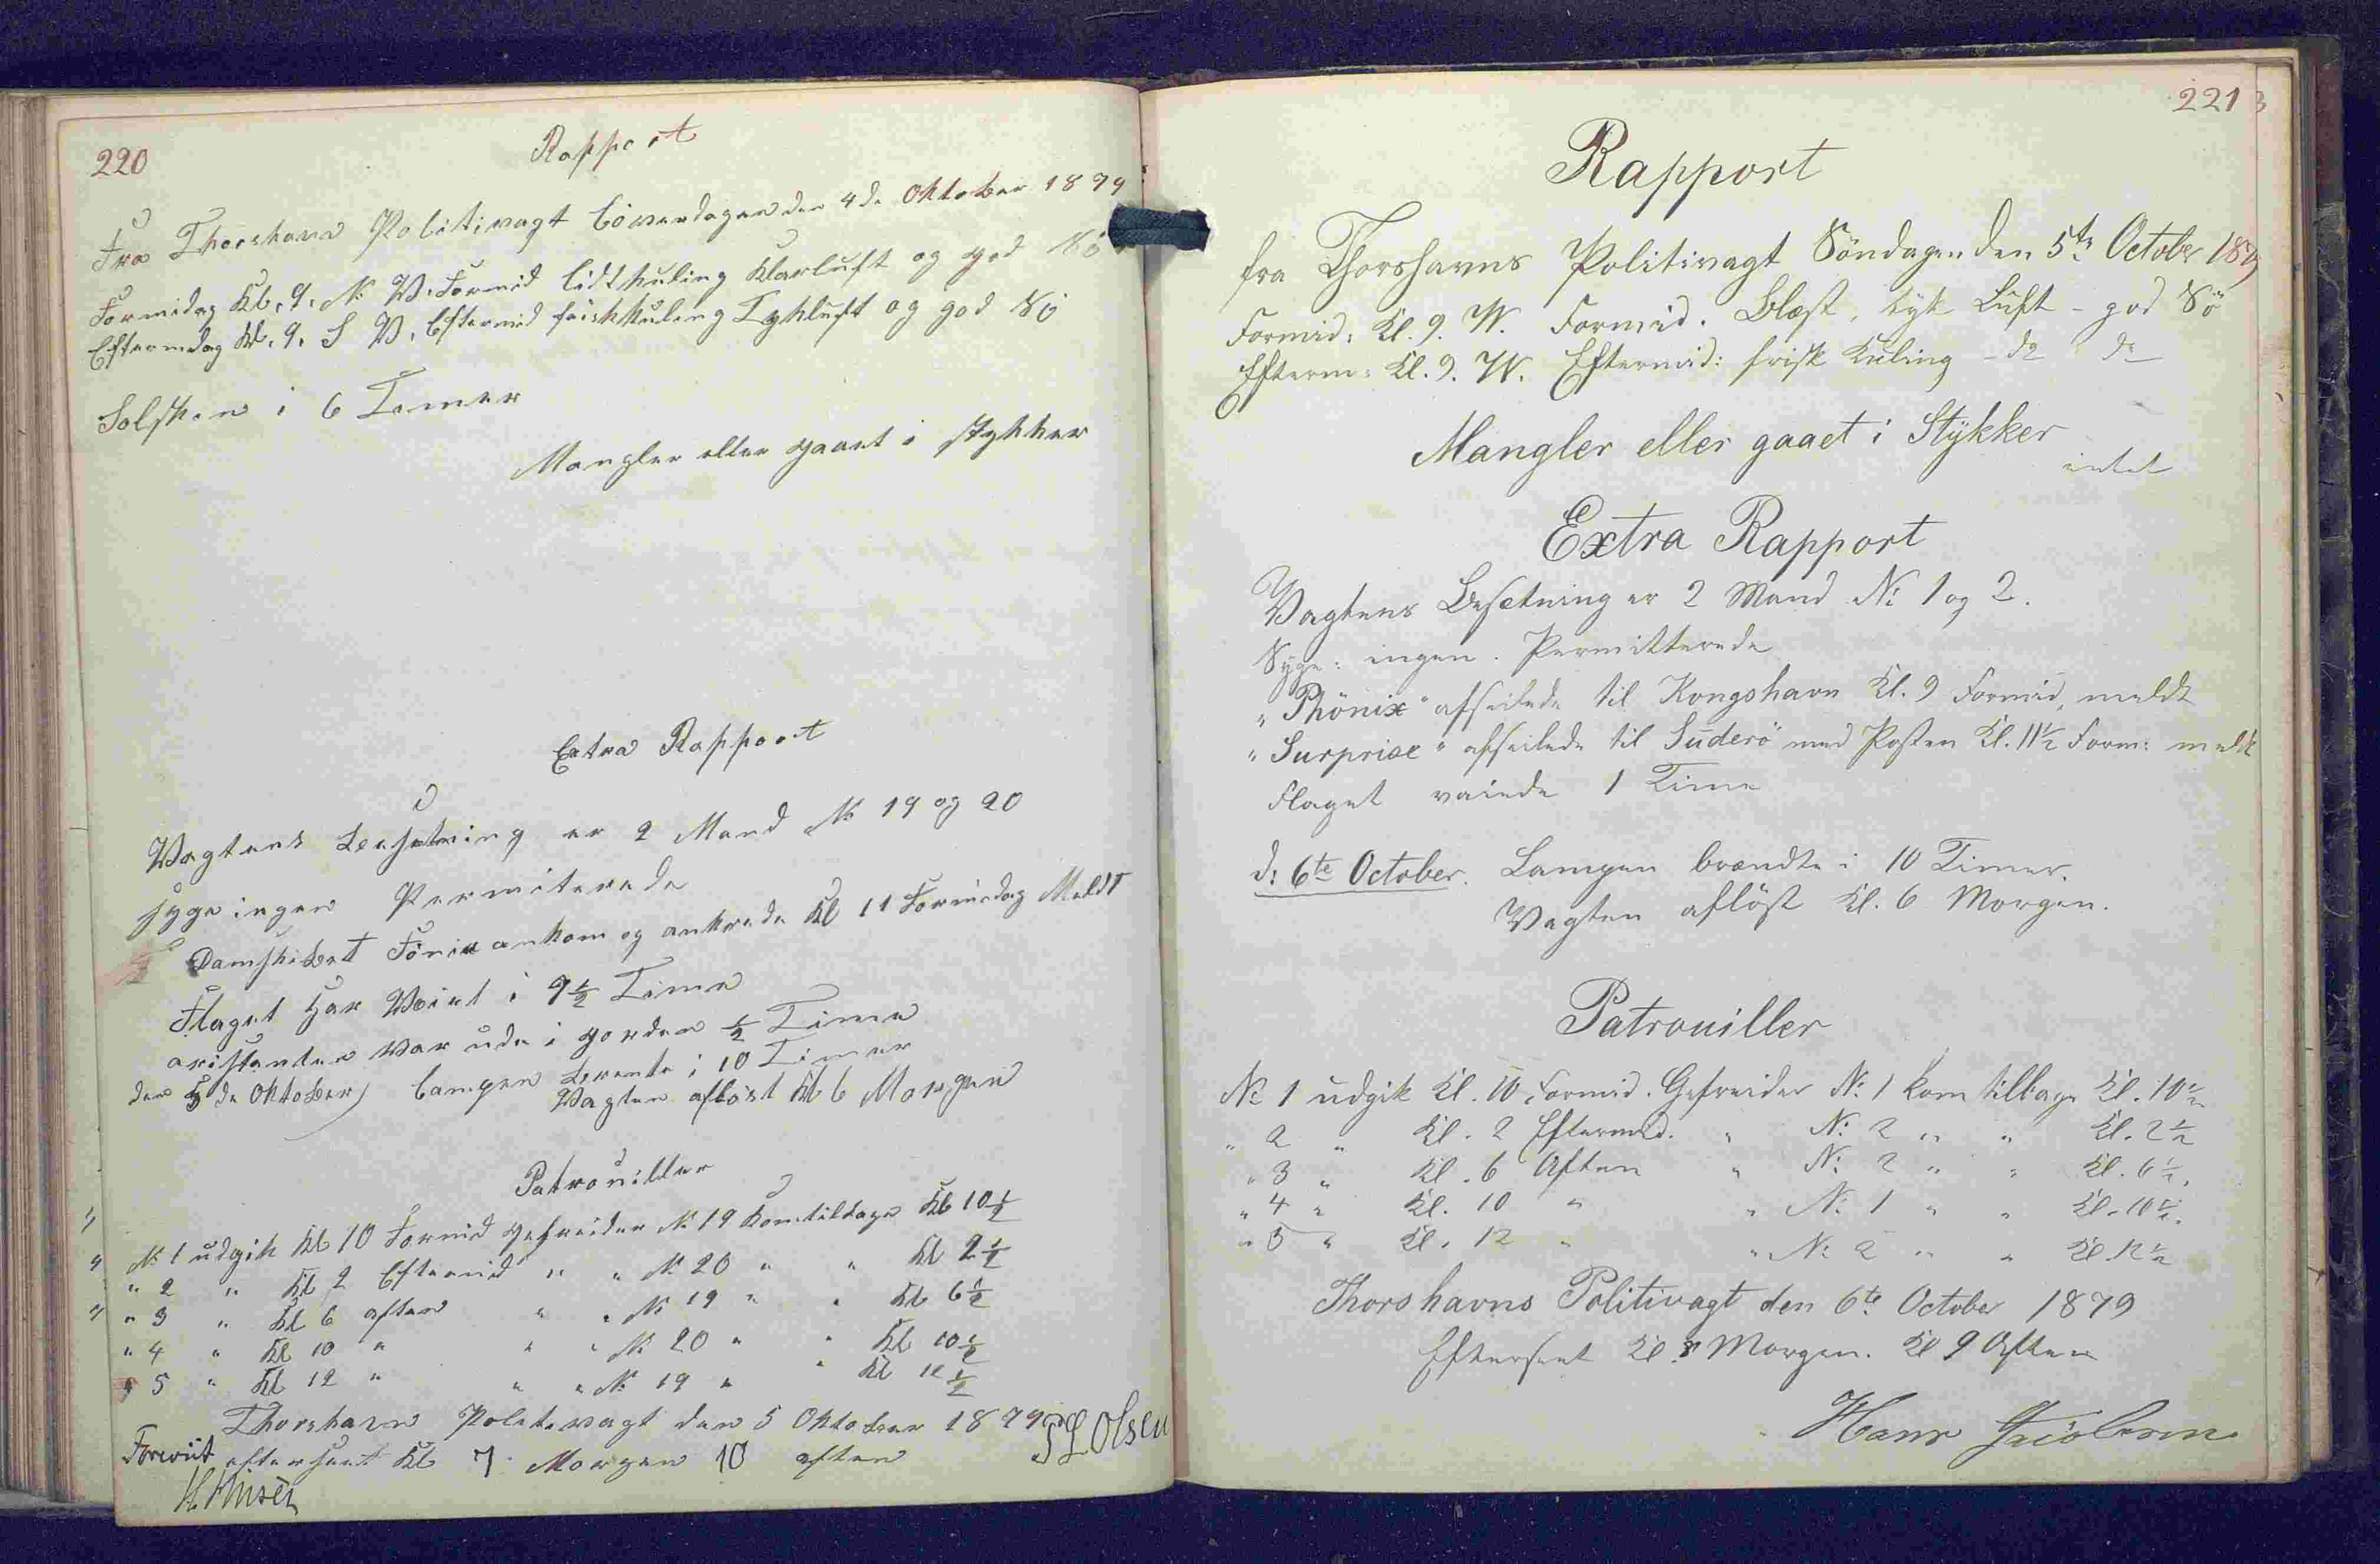 220
Rapport
Fra Thorshavn Politivagt Löverdagen den 4de Oktober 1879
Formidag Kl. 9. N. V. Formid lidt kuling Klarluft og god Sö
Eftermidag Kl. 9. S V. Eftermid friskkuling Tykluft og god Sö
Solsken i 6 Timer
Mangler eller gaaet i stykker
Extra Rapport
Vagtens Besetning er 2 Mand No 19 og 20
syge ingen Permiterede
Damskibet Fönix ankom og ankrede Kl 11 Formidag Meldt
Flaget har Vaiet i 9½ Time
aristanten var ude i gorden ½ Time
den 5de Oktober Lampen brente i 10 Timer
Vagten aflöst Kl 6 Morgen
Patrouiller
No 1 udgik Kl 10 Formid gefreider No 19 Kom tilbage Kl 10½
" 2 " Kl 2 Eftermid " " No 20 " " Kl 2½
" 3 " Kl 6 aften " " No 19 " " Kl 6½
" 4 " Kl 10 " " " No 20 " " Kl 10½
" 5 " Kl 12 " " " No 19 " " Kl 12½
Thorshavn Politivagt den 5 Oktober 1879
Foreviist efterseet Kl 7 Morgen 10 aften
Olsen
221
Rapport
fra Thorshavns Politivagt Söndagen den 5te October 1879
Formid: Kl. 9. W. Formid. Blæst, tyk Luft - god Sö
Efterm: Kl. 9. W. Eftermid: frisk Kuling - do do
Mangler eller gaaet i Stykker
intet
Extra Rapport
Vagtens Besætning er 2 Mand No 1 og 2.
Syge: ingen. Permitterede
"Phönix" afseilede til Kongshavn Kl. 9 Formid, meldt
"Surprise" afseilede til Suderö med Posten Kl. 11½ Form: meldt
Flaget vaiede 1 Time
d: 6te October. Lampen brændte i 10 Timer.
Vagten aflöst Kl. 6 Morgen.
Patrouiller
No 1 udgik Kl. 10 Formid. Gefreider No 1 kom tilbage Kl. 10½
" 2 " Kl. 2 Eftermid. " No 2 " " Kl. 2½
" 3 " Kl. 6 Aften " No 2 " " Kl. 6½.
" 4 " Kl. 10 " " No 1 " " Kl. 10½.
" 5 " Kl. 12 " " No 2 " " Kl 12½
Thorshavns Politivagt den 6te October 1879
Efterseet Kl 8 Morgen. Kl 9 Aften
Hans Jacobsen